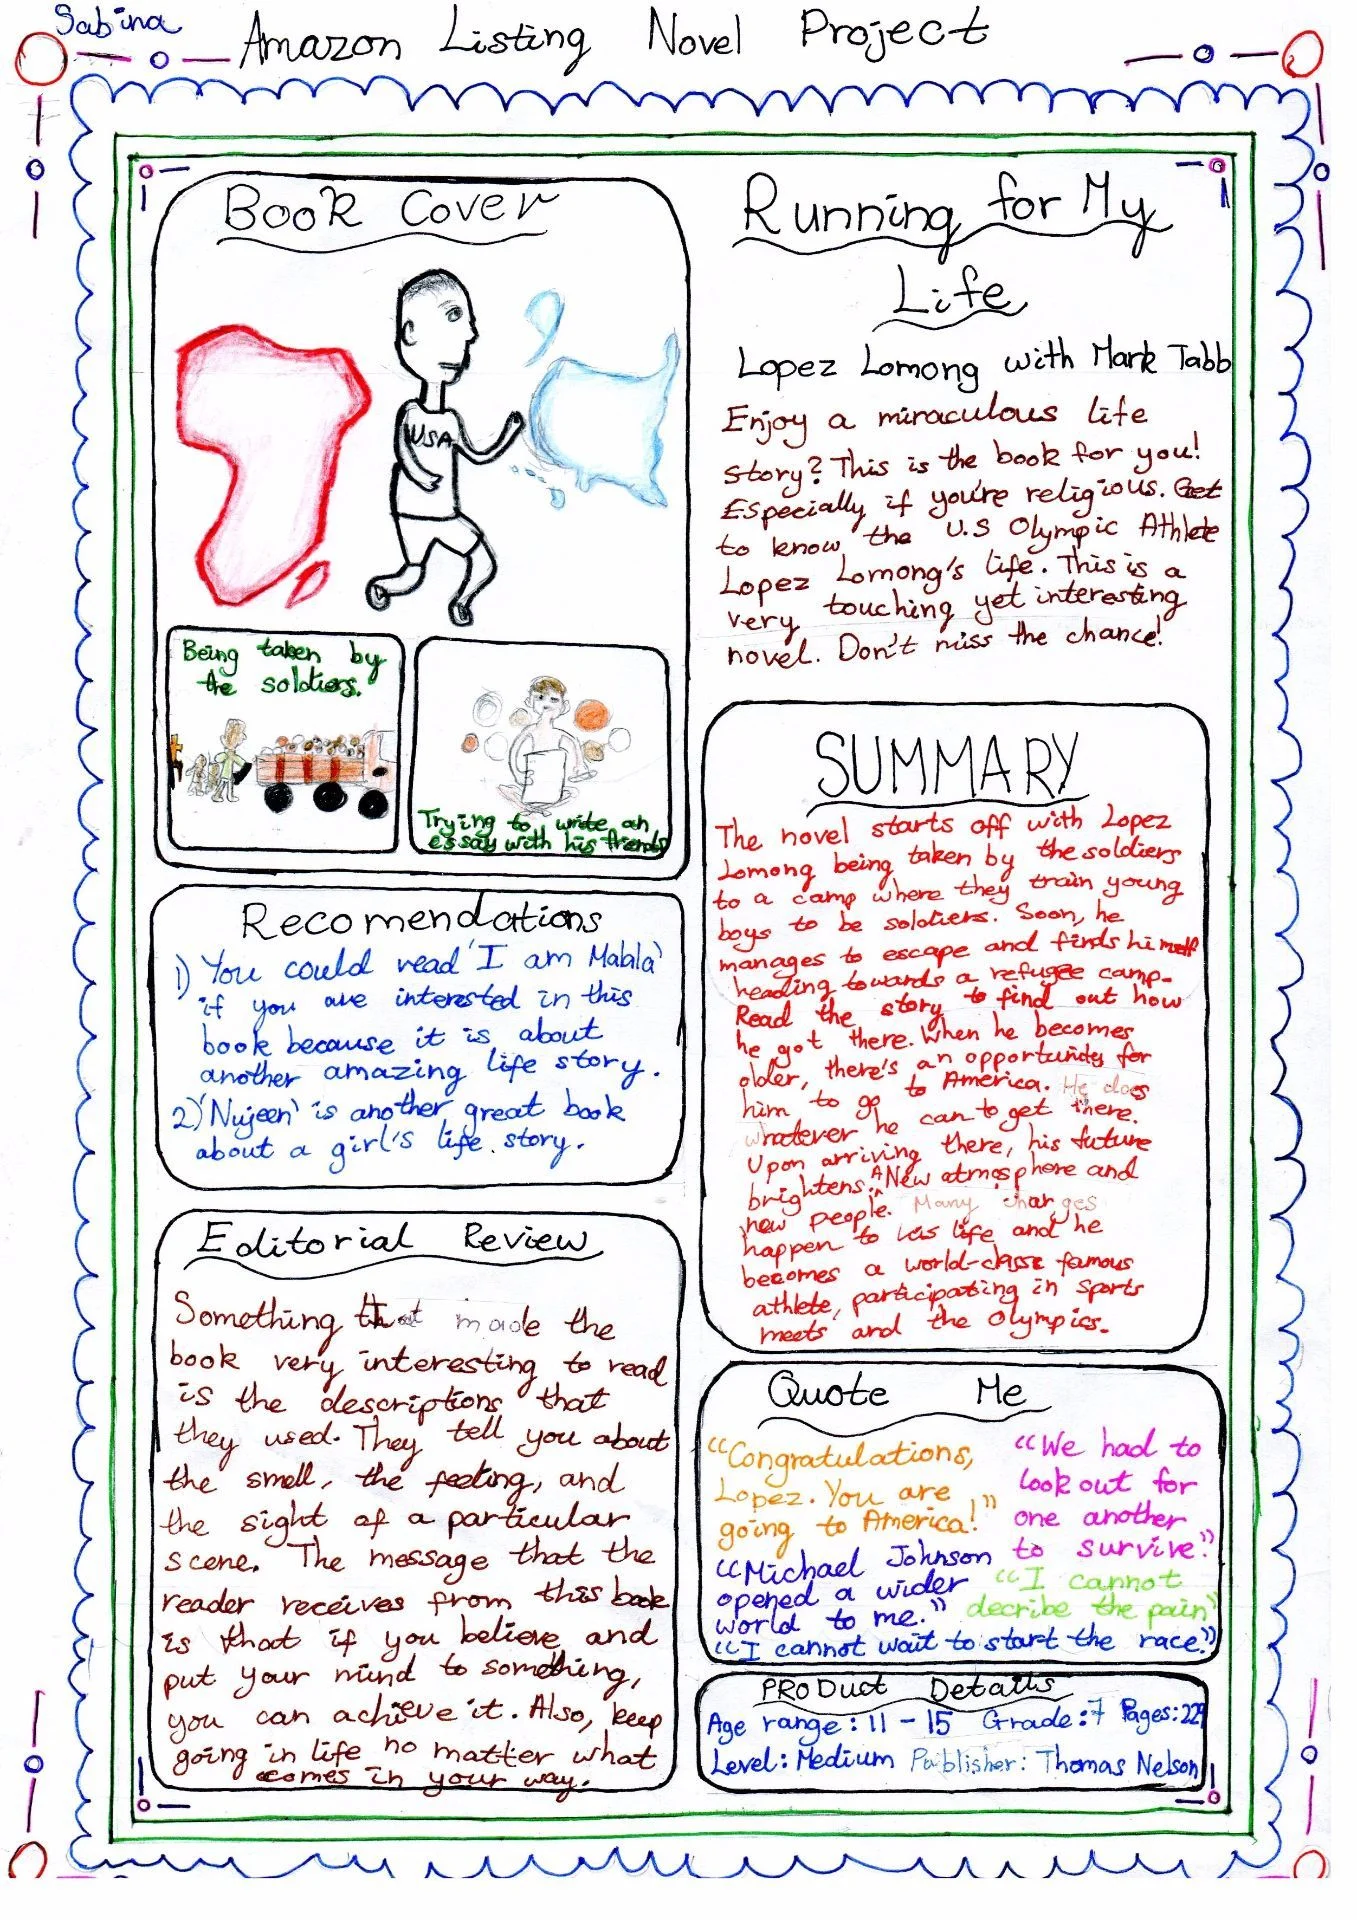 Sabina
Amazon Listing Novel Project
Book Cover
USA
Being taken by
the soldiers.
Trying to write an
essay with his friends
Recomendations
1) You could read 'I am Malala'
if you are interested in this
book because it is about
another amazing life story.
2) 'Nujeen' is another great book
about a girl's life story.
Editorial Review
Something that made the
book very interesting to read
is the descriptions that
they used. They tell you about
the smell, the feeling, and
the sight of a particular
scene. The message that the
reader receives from this book
is that if you believe and
put your mind to something,
you can achieve it. Also, keep
going in life no matter what
comes in your way.
Running for My
Life
Lopez Lomong with Mark Tabb
Enjoy a miraculous life
story? This is the book for you!
Especially if you're religious. Get
to know the U.S Olympic Athlete
Lopez Lomong's life. This is a
very touching yet interesting
novel. Don't miss the chance!
SUMMARY
The novel starts off with Lopez
Lomong being taken by the soldiers
to a camp where they train young
boys to be soldiers. Soon, he
manages to escape and finds himself
heading towards a refugee camp.
Read the story to find out how
he got there. When he becomes
older, there's an opportunity for
him to go to America. He does
whatever he can to get there.
Upon arriving there, his future
brightens. A New atmosphere and
new people. Many changes
happen to his life and he
becomes a world-class famous
athlete, participating in sports
meets and the Olympics.
Quote Me
"Congratulations,
Lopez. You are
going to America!"
"We had to
look out for
one another
to survive."
"Michael Johnson
opened a wider
world to me."
"I cannot
decribe the pain"
"I cannot wait to start the race."
Product Details
Age range: 11 - 15 Grade: 7 Pages: 229
Level: Medium Publisher: Thomas Nelson